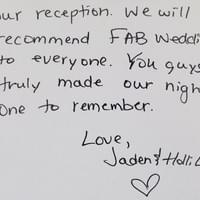 our reception. We will
recommend FAB Weddi
to everyone. You guys
truly made our nigh
one to remember.
Love,
Jaden & Holli